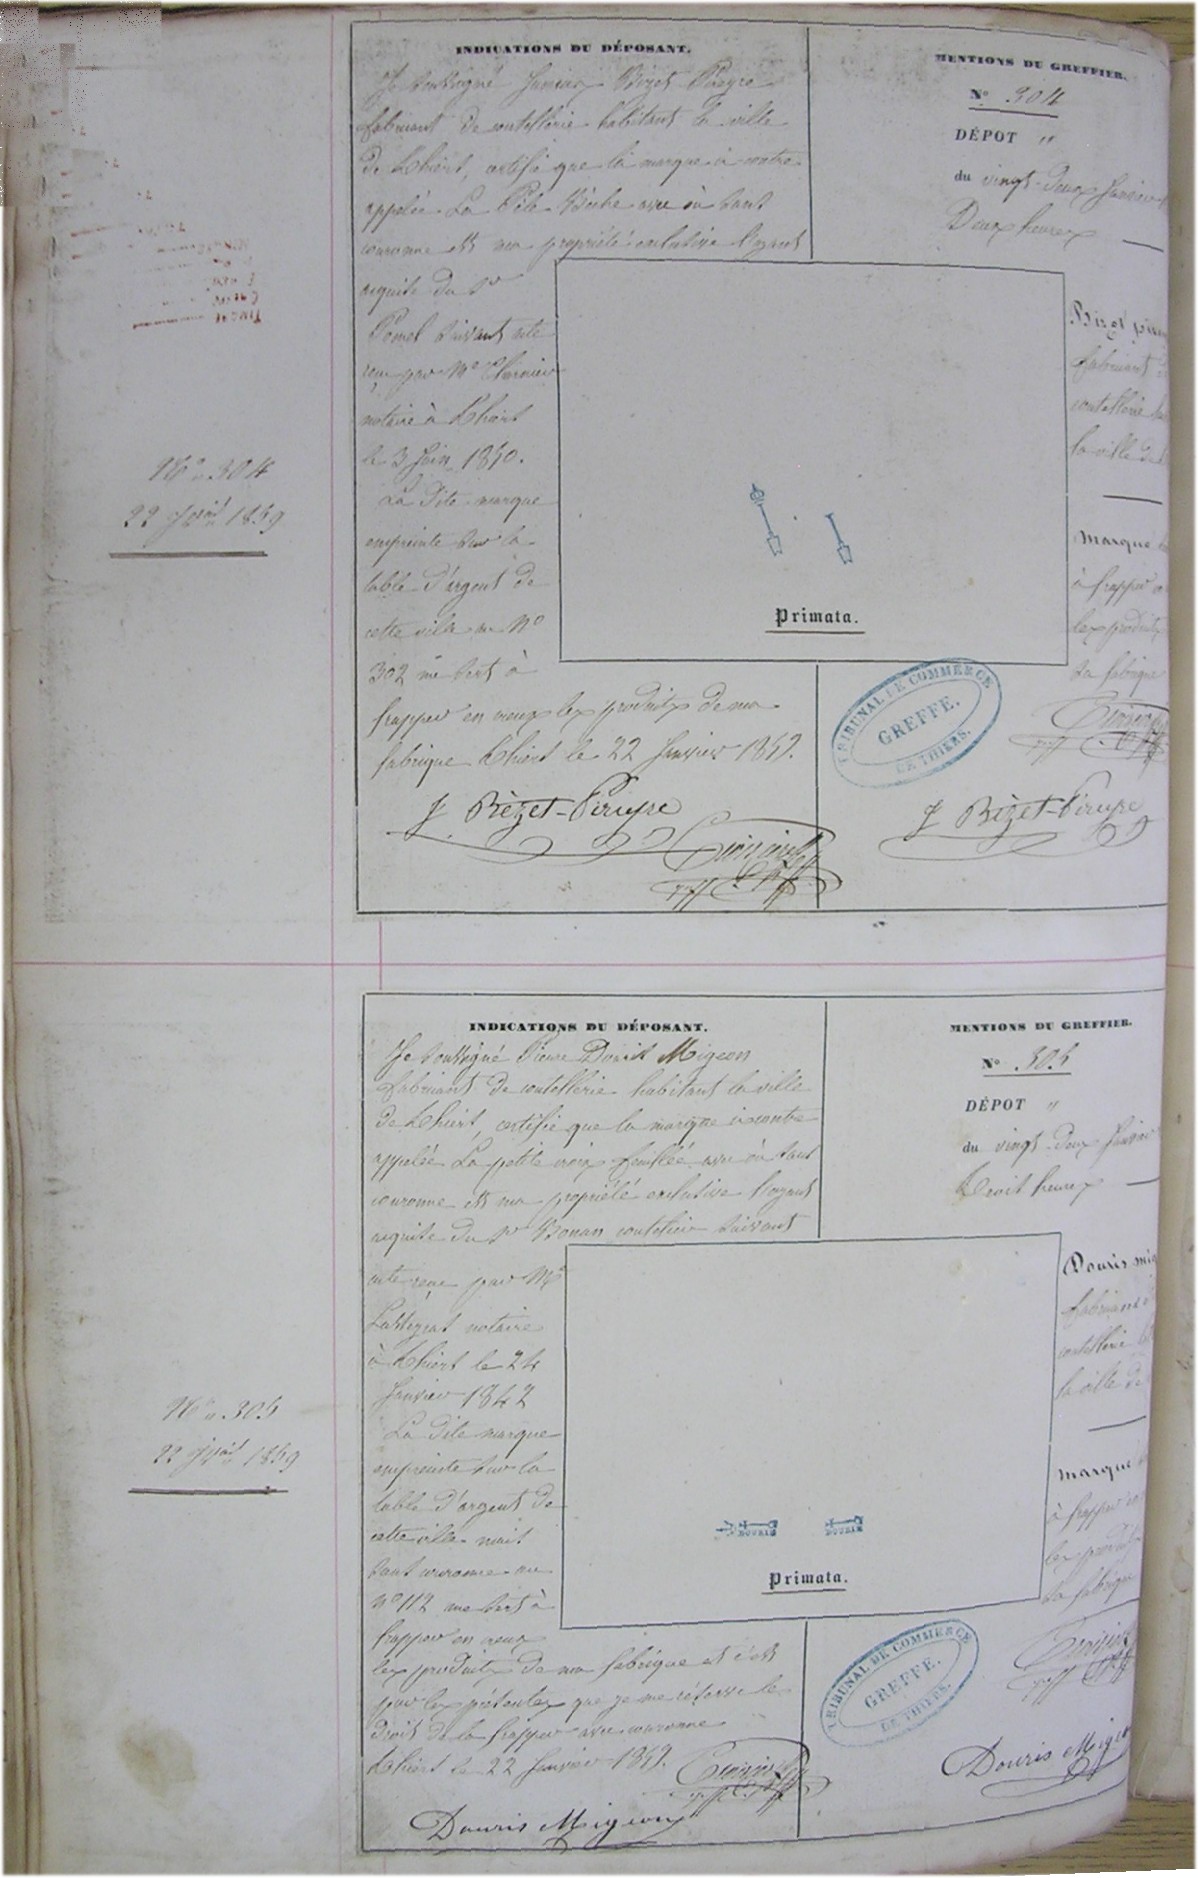 INDICATIONS DU DÉPOSANT.
Je soussigné Bizet
fabricant de coutellerie habitant la ville
de Thiers, certifie que la marque ci contre
appelée La Pele Bêche avec ou sans
couronne est ma propriété exclusive l'ayant
acquise du Sr
Pomel suivant acte
reçu par Me
notaire à Thiers
le 3 Juin 1850.
La dite marque
empreinte sur la
table d'argent de
cette ville au No
302 me sert à
frapper en creux les produits de ma
fabrique Thiers le 22 Janvier 1859.
J. Bizet-Pireyre
MENTIONS DU GREFFIER.
No 304
DÉPOT "
du vingt-deux Janvier
Deux heures
Bizet
fabricant
coutellerie
la ville de
marque
à frapper
les produits
sa fabrique
J. Bizet-Pireyre
Primata.
TRIBUNAL DE COMMERCE
GREFFE.
DE THIERS.
No 304
22 Jvier 1859
INDICATIONS DU DÉPOSANT.
Je soussigné Pierre Douris Migeon
fabricant de coutellerie habitant la ville
de Thiers, certifie que la marque ci contre
appelée La petite croix feuillée avec ou sans
couronne est ma propriété exclusive l'ayant
acquise du Sr Bonan coutelier suivant
acte reçu par Me
notaire
à Thiers le 24
Janvier 1842
La dite marque
empreinte sur la
table d'argent de
cette ville mais
sans couronne au
No 112 me sert à
frapper en creux
les produits de ma fabrique et c'est
par les présentes que je me réserve le
droit de la frapper avec couronne
Thiers le 22 Janvier 1859.
Douris Migeon
MENTIONS DU GREFFIER.
No 305
DÉPOT "
du vingt-deux Janvier
Trois heures
Douris
fabricant
coutellerie
la ville de
marque
à frapper
les produits
sa fabrique
Douris Migeon
DOURIS
DOURIS
Primata.
TRIBUNAL DE COMMERCE
GREFFE.
DE THIERS.
No 305
22 Jvier 1859